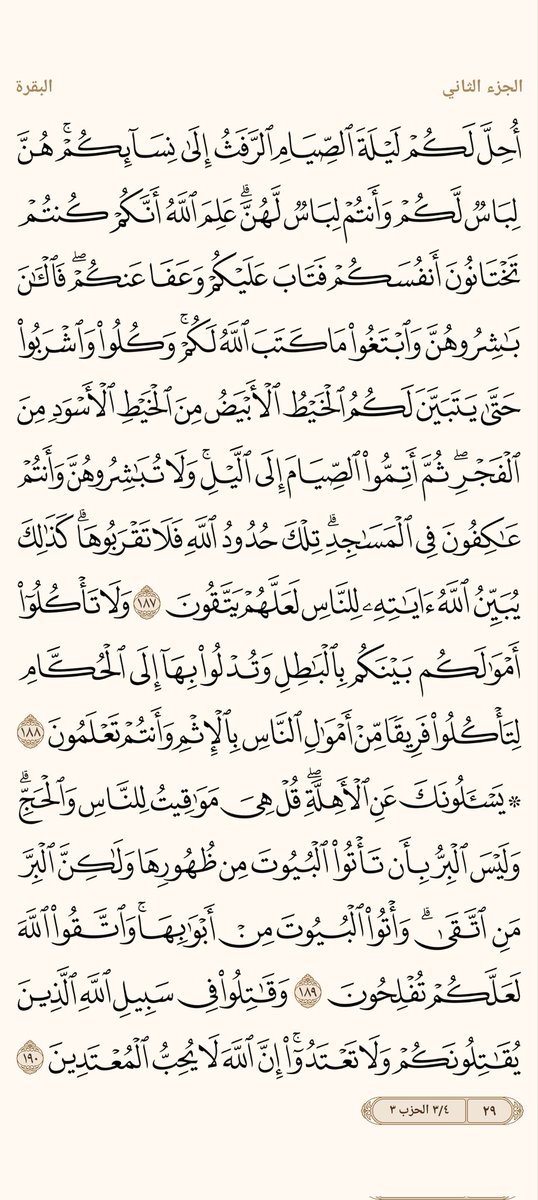 الجزء الثاني
البقرة
أُحِلَّ لَكُمْ لَيْلَةَ ٱلصِّيَامِ ٱلرَّفَثُ إِلَىٰ نِسَآئِكُمْۚ هُنَّ
لِبَاسٌ لَّكُمْ وَأَنتُمْ لِبَاسٌ لَّهُنَّۗ عَلِمَ ٱللَّهُ أَنَّكُمْ كُنتُمْ
تَخْتَانُونَ أَنفُسَكُمْ فَتَابَ عَلَيْكُمْ وَعَفَا عَنكُمْۖ فَٱلْـَٰٔنَ
بَٰشِرُوهُنَّ وَٱبْتَغُوا۟ مَا كَتَبَ ٱللَّهُ لَكُمْۚ وَكُلُوا۟ وَٱشْرَبُوا۟
حَتَّىٰ يَتَبَيَّنَ لَكُمُ ٱلْخَيْطُ ٱلْأَبْيَضُ مِنَ ٱلْخَيْطِ ٱلْأَسْوَدِ مِنَ
ٱلْفَجْرِۖ ثُمَّ أَتِمُّوا۟ ٱلصِّيَامَ إِلَى ٱلَّيْلِۚ وَلَا تُبَٰشِرُوهُنَّ وَأَنتُمْ
عَٰكِفُونَ فِى ٱلْمَسَٰجِدِۗ تِلْكَ حُدُودُ ٱللَّهِ فَلَا تَقْرَبُوهَاۗ كَذَٰلِكَ
يُبَيِّنُ ٱللَّهُ ءَايَٰتِهِۦ لِلنَّاسِ لَعَلَّهُمْ يَتَّقُونَ ١٨٧ وَلَا تَأْكُلُوٓا۟
أَمْوَٰلَكُم بَيْنَكُم بِٱلْبَٰطِلِ وَتُدْلُوا۟ بِهَآ إِلَى ٱلْحُكَّامِ
لِتَأْكُلُوا۟ فَرِيقًا مِّنْ أَمْوَٰلِ ٱلنَّاسِ بِٱلْإِثْمِ وَأَنتُمْ تَعْلَمُونَ ١٨٨
۞ يَسْـَٔلُونَكَ عَنِ ٱلْأَهِلَّةِۖ قُلْ هِىَ مَوَٰقِيتُ لِلنَّاسِ وَٱلْحَجِّۗ
وَلَيْسَ ٱلْبِرُّ بِأَن تَأْتُوا۟ ٱلْبُيُوتَ مِن ظُهُورِهَا وَلَٰكِنَّ ٱلْبِرَّ
مَنِ ٱتَّقَىٰۗ وَأْتُوا۟ ٱلْبُيُوتَ مِنْ أَبْوَٰبِهَاۚ وَٱتَّقُوا۟ ٱللَّهَ
لَعَلَّكُمْ تُفْلِحُونَ ١٨٩ وَقَٰتِلُوا۟ فِى سَبِيلِ ٱللَّهِ ٱلَّذِينَ
يُقَٰتِلُونَكُمْ وَلَا تَعْتَدُوٓا۟ۚ إِنَّ ٱللَّهَ لَا يُحِبُّ ٱلْمُعْتَدِينَ ١٩٠
٢٩
٣/٤ الحزب ٣